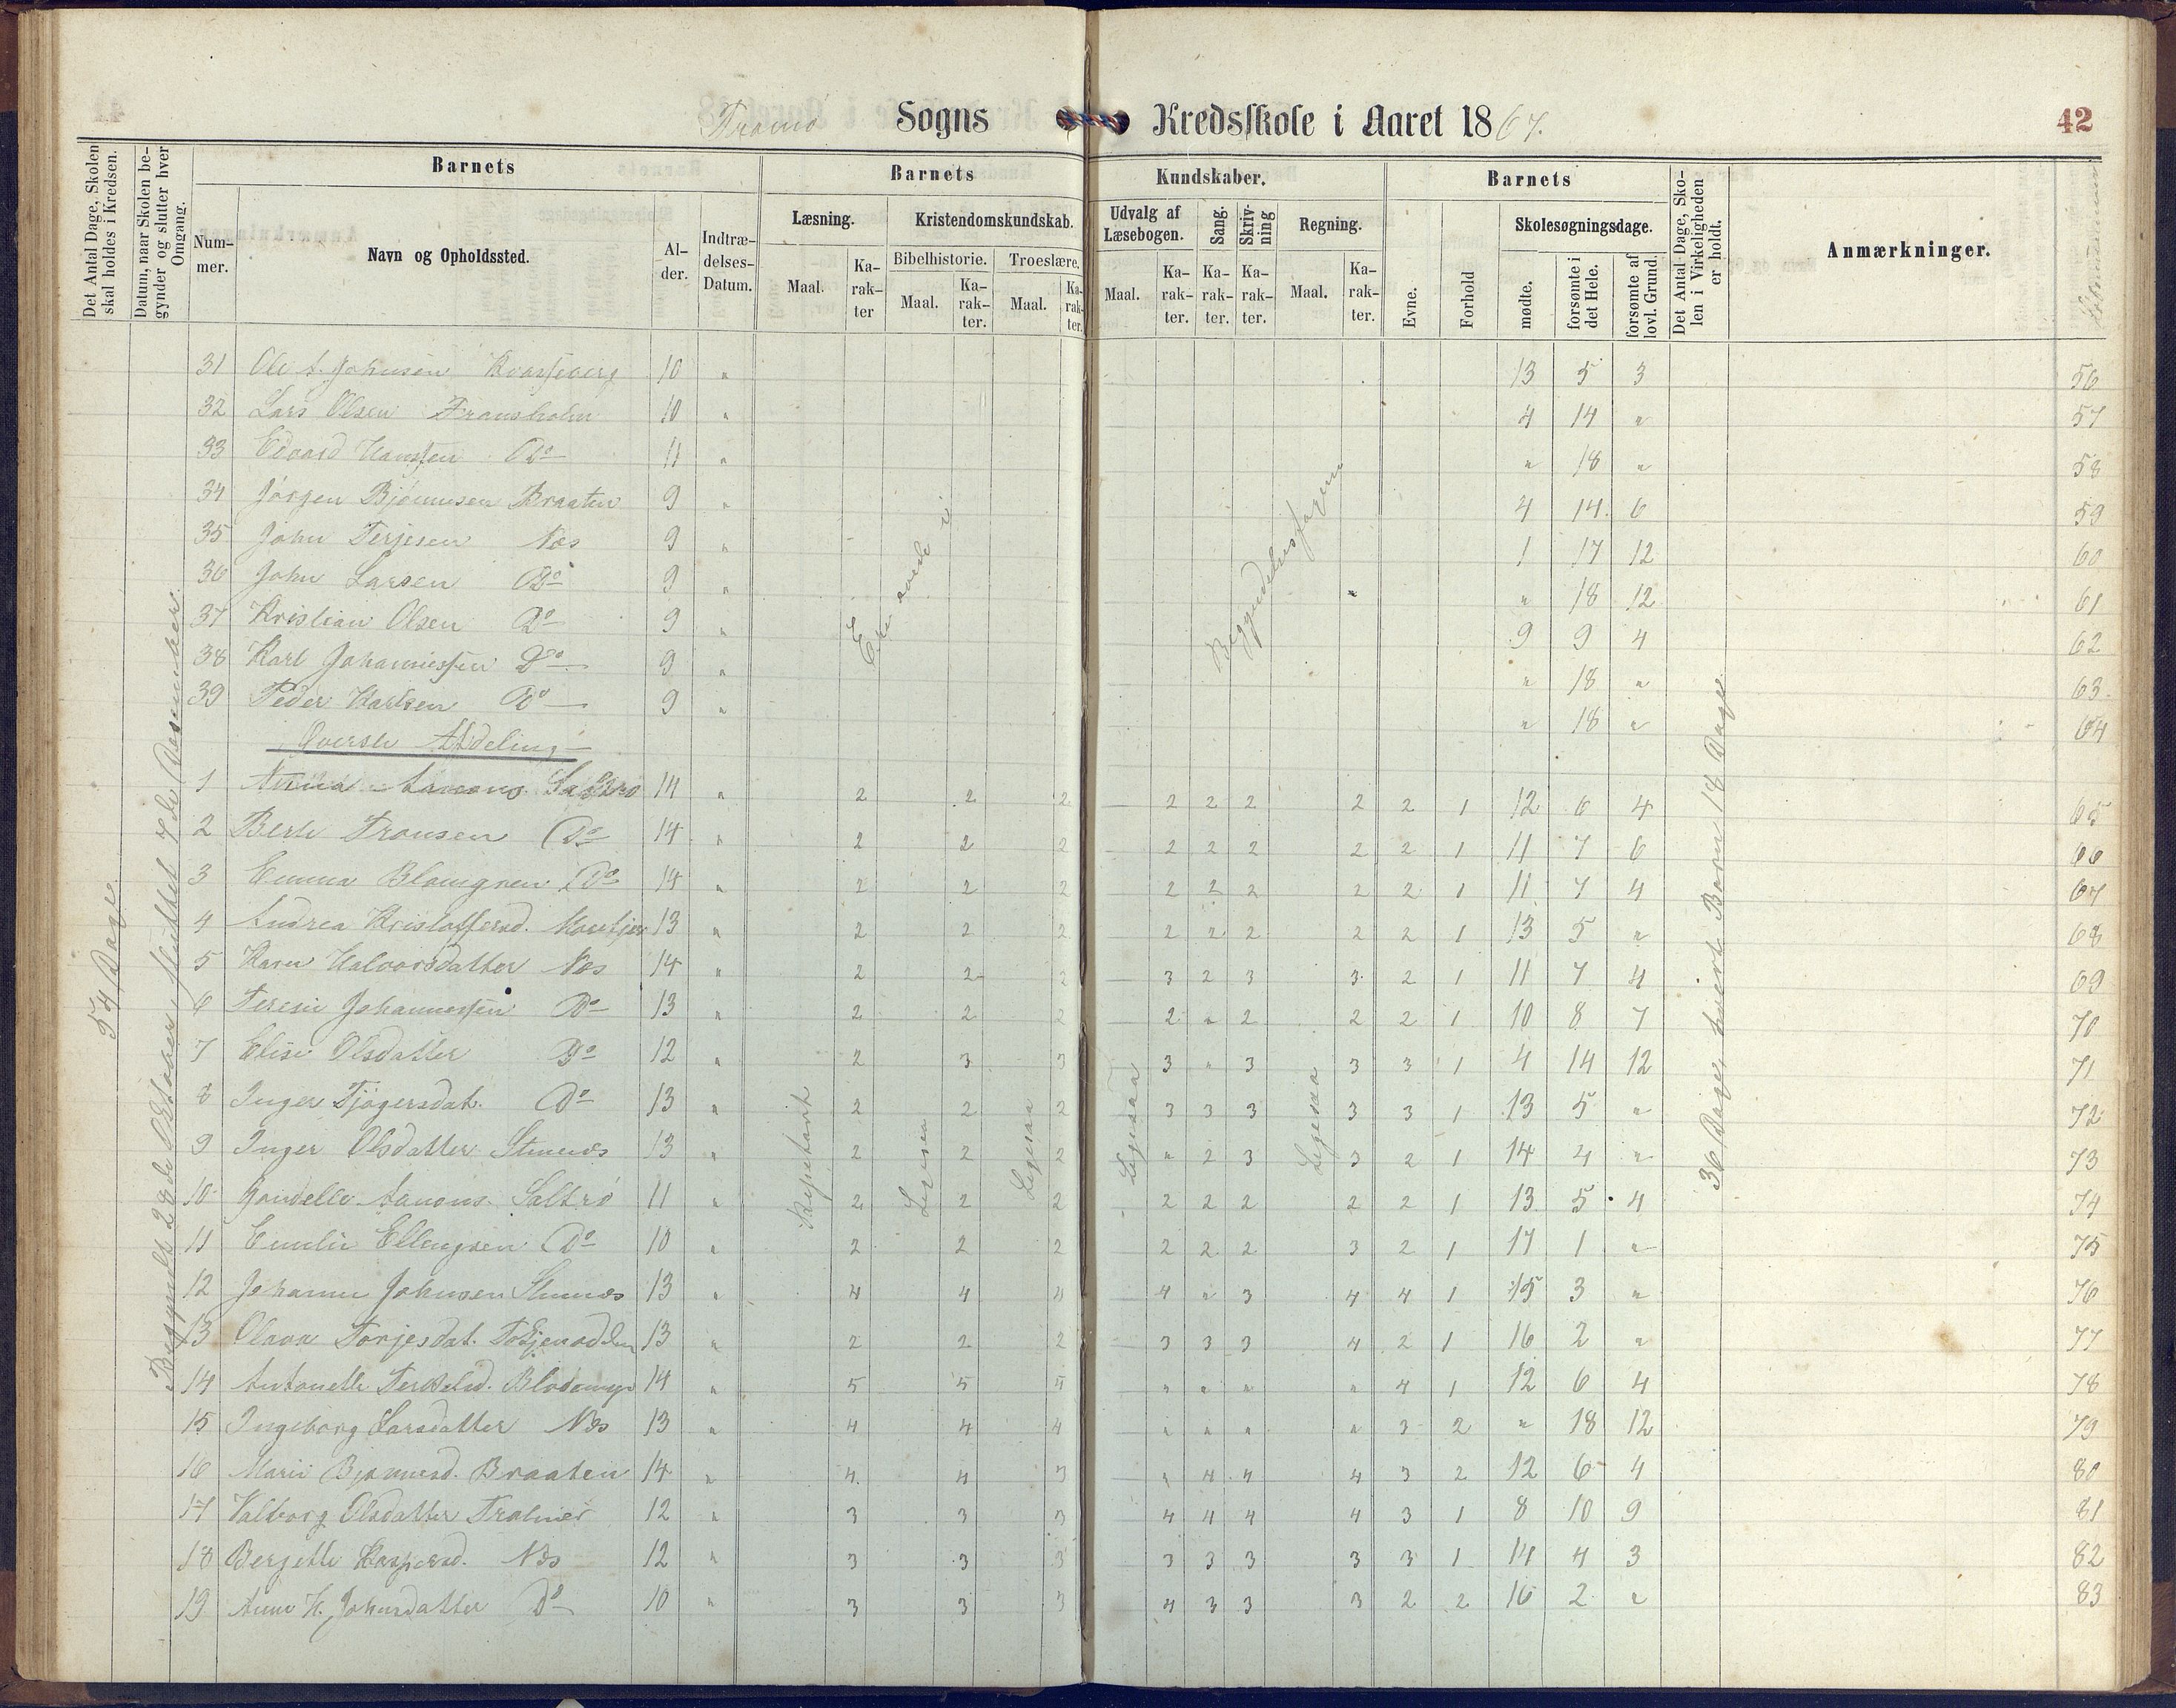 Tromö Sogns Kredsskole i Aaret 1867. 42
Det Antal Dage, Skolen skal holdes i Kredsen.
Datum, naar Skolen begynder og slutter hver Omgang.
Barnets
Nummer.
Navn og Opholdssted.
Alder.
Indtrædelses-Datum.
Barnets Kundskaber.
Læsning. Maal. Karakter
Kristendomskundskab.
Bibelhistorie. Maal. Karakter.
Troeslære. Maal. Karakter.
Udvalg af Læsebogen. Maal. Karakter.
Sang. Karakter.
Skrivning Karakter.
Regning. Maal. Karakter.
Barnets
Evne.
Forhold
Skolesøgningsdage.
mødte.
forsømte i det Hele.
forsømte af lovl. Grund.
Det Antal Dage, Skolen i Virkeligheden er holdt.
Anmærkninger.
54 Dage
Begyndt 28de Oktober, sluttet 7de Desember.
36 Dage, hvert Barn 18 Dage
Begyndelsesfagene
31 Ole A. Johnsen 10 " 13 5 3 56
32 Lars Olsen Fransholm 10 " 4 14 " 57
33 Edvard Hanssen Do 11 " " 18 " 58
34 Jörgen Björnnsen Braaten 9 " 4 14 6 59
35 John Terjesen Næs 9 " 1 17 12 60
36 John Larsen Do 9 " " " 18 12 61
37 Kristian Olsen Do 9 " 9 9 4 62
38 Karl Johannessen Do 9 " " 18 " 63
39 Peder Karlsen Do 9 " " 18 " 64
Överste Afdeling
1 Anna Aanons. Saltrö 14 " 2 2 2 2 2 2 2 2 1 12 6 4 65
2 Berte Fransen Do 14 " 2 2 2 2 2 2 2 2 1 11 7 6 66
3 Emma Blomgren Do 14 " 2 2 2 2 2 2 2 2 1 11 7 4 67
4 Andrea Kristoffersd. 13 " 2 2 2 2 2 2 2 2 1 13 5 " 68
5 Karn Halvorsdatter Næs 14 " 2 2 2 3 2 3 3 2 1 11 7 4 69
6 Teresie Johannessen Do 13 " 2 2 2 2 " 2 2 2 1 10 8 7 70
7 Elise Olsdatter Do 12 " 2 3 3 3 " 3 3 3 1 4 14 12 71
8 Inger Tjögersdat. Do 13 " 2 2 2 3 3 3 3 3 1 13 5 " 72
9 Inger Olsdatter Stuenes 13 " 2 2 2 " 2 3 3 2 1 14 4 " 73
10 Gundelle Aanons. Saltrö 11 " 2 2 2 2 2 2 2 2 1 13 5 4 74
11 Emelie Ellengsen Do 10 " 2 2 2 2 2 2 3 2 1 17 1 " 75
12 Johanne Johnsen Stuenes 13 " 4 4 4 4 " 3 4 4 1 15 3 " 76
13 Olava Torjesdat. 13 " 2 2 2 3 3 3 4 2 1 16 2 " 77
14 Antonette Terkelsd. Blodemyr 14 " 5 5 5 " " " " 4 1 12 6 4 78
15 Ingeborg Larsdatter Næs 13 " 4 4 4 " " " " 3 2 " 18 12 79
16 Marie Björnnsd. Braaten 14 " 4 4 3 " 4 4 4 3 2 12 6 4 80
17 Valborg Olsdatter 12 " 3 3 3 4 4 4 4 3 1 8 10 9 81
18 Bergette Kaspersd. Næs 12 " 3 3 3 3 3 3 3 3 1 14 4 3 82
19 Anne K. Johnsdatter Do 10 " 3 3 3 4 3 3 3 2 2 16 2 " 83
Repetert
Ligesaa
Ligesaa
Ligesaa
Ligesaa